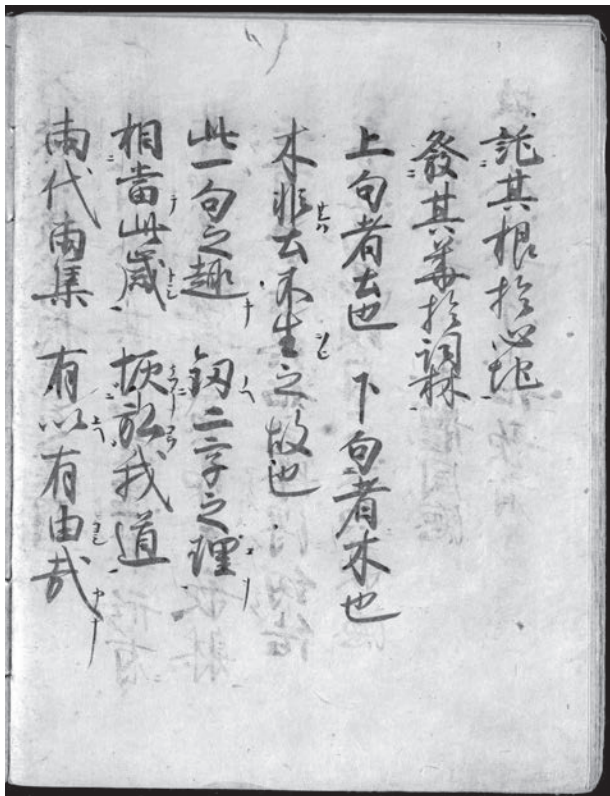 託其根於心地
發其華於詞林
上句者土也 下句者木也
木非土不生之故也
此一句之趣 二字之理
相當此歳 恢弘我道
兩代兩集 有以有由哉